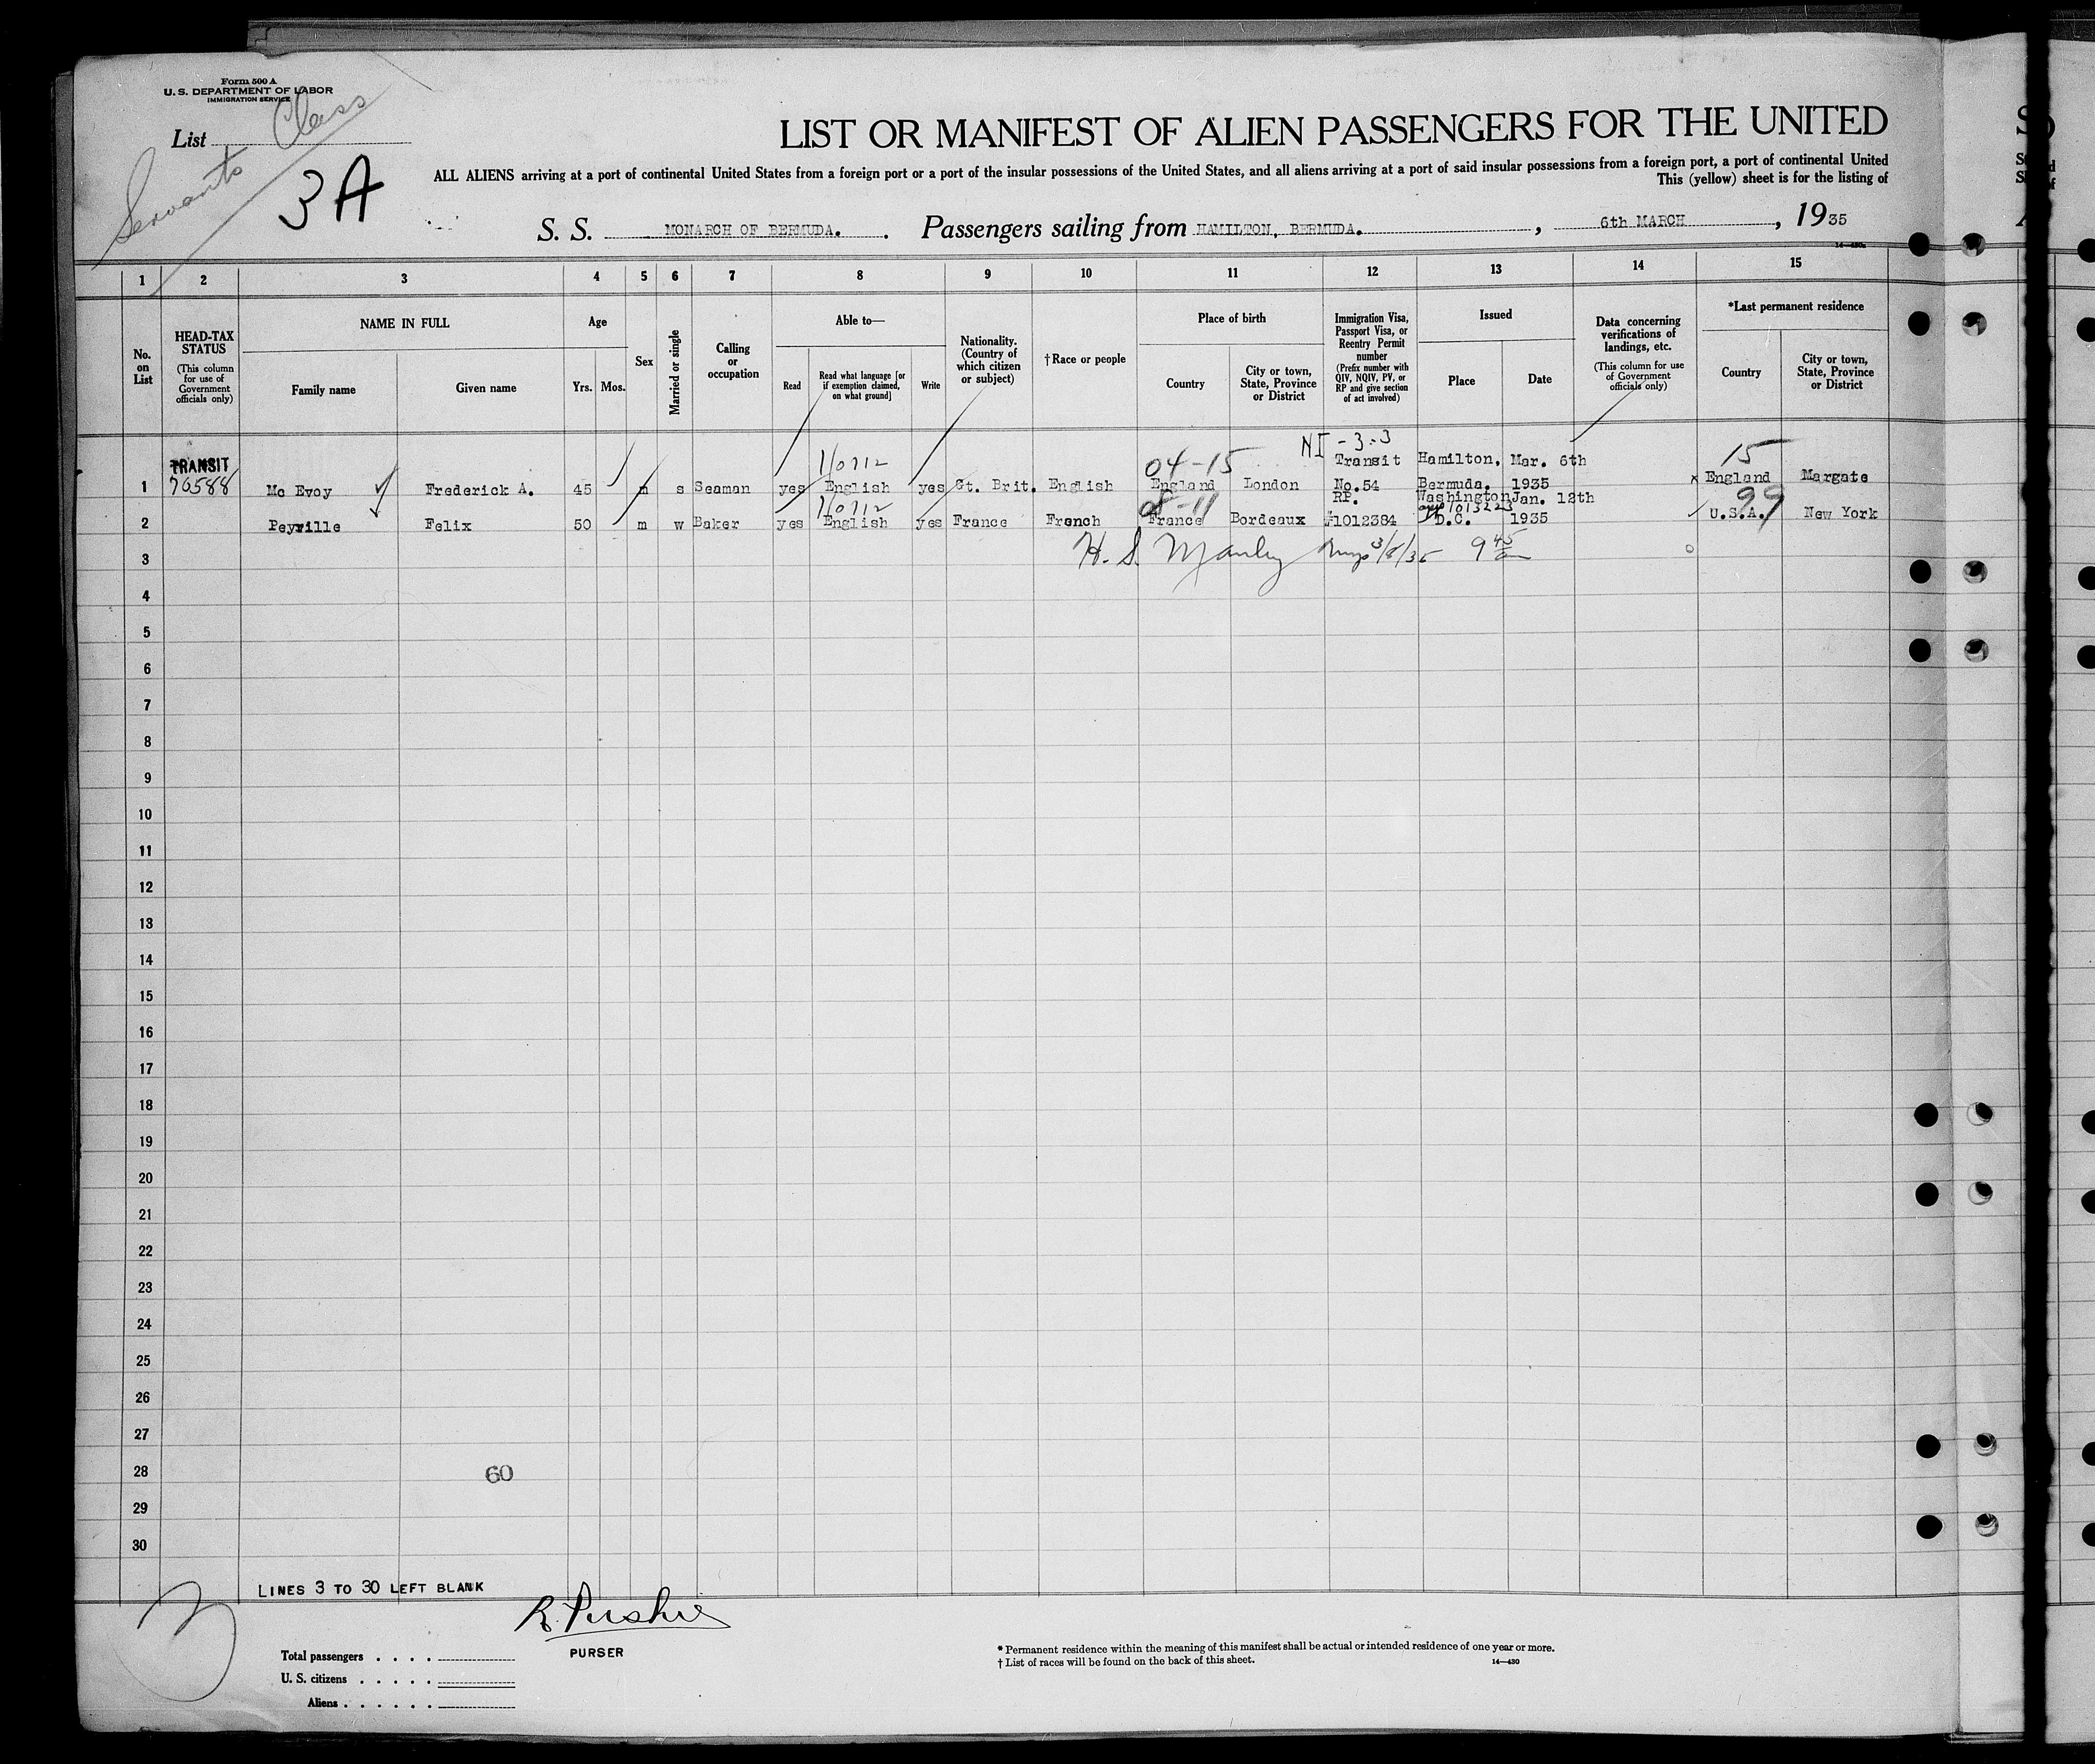 Form 500 A
U. S. DEPARTMENT OF LABOR
IMMIGRATION SERVICE
List
Servants Class
3A
LIST OR MANIFEST OF ALIEN PASSENGERS FOR THE UNITED
ALL ALIENS arriving at a port of continental United States from a foreign port or a port of the insular possessions of the United States, and all aliens arriving at a port of said insular possessions from a foreign port, a port of continental United
This (yellow) sheet is for the listing of
S. S. MONARCH OF BERMUDA. Passengers sailing from HAMILTON, BERMUDA. , 6th MARCH , 1935
1 2 3 4 5 6 7 8 9 10 11 12 13 14 15
No. on List
HEAD-TAX STATUS (This column for use of Government officials only)
NAME IN FULL
Family name Given name
Age
Yrs. Mos.
Sex
Married or single
Calling or occupation
Able to—
Read Read what language [or if exemption claimed, on what ground] Write
Nationality. (Country of which citizen or subject)
†Race or people
Place of birth
Country City or town, State, Province or District
Immigration Visa, Passport Visa, or Reentry Permit number (Prefix number with QIV, NQIV, PV, or RP and give section of act involved)
Issued
Place Date
Data concerning verifications of landings, etc. (This column for use of Government officials only)
*Last permanent residence
Country City or town, State, Province or District
NI - 3-3
TRANSIT 04-15 Transit Hamilton, Mar. 6th 15
1 76588 Mc Evoy Frederick A. 45 m s Seaman yes English yes Gt. Brit. English England London No.54 Bermuda. 1935 x England Margate
08-11 RP. Washington Jan. 12th 99
2 Peyville Felix 50 m w Baker yes English yes France French France Bordeaux #1012384 D.C. 1935 U.S.A. New York
3 H. S. Manley 3/8/35 9 45
4
5
6
7
8
9
10
11
12
13
14
15
16
17
18
19
20
21
22
23
24
25
26
27
28 60
29
30
LINES 3 TO 30 LEFT BLANK
PURSER
Total passengers . . . .
U. S. citizens . . . . .
Aliens . . . . . .
* Permanent residence within the meaning of this manifest shall be actual or intended residence of one year or more.
† List of races will be found on the back of this sheet.
14—430